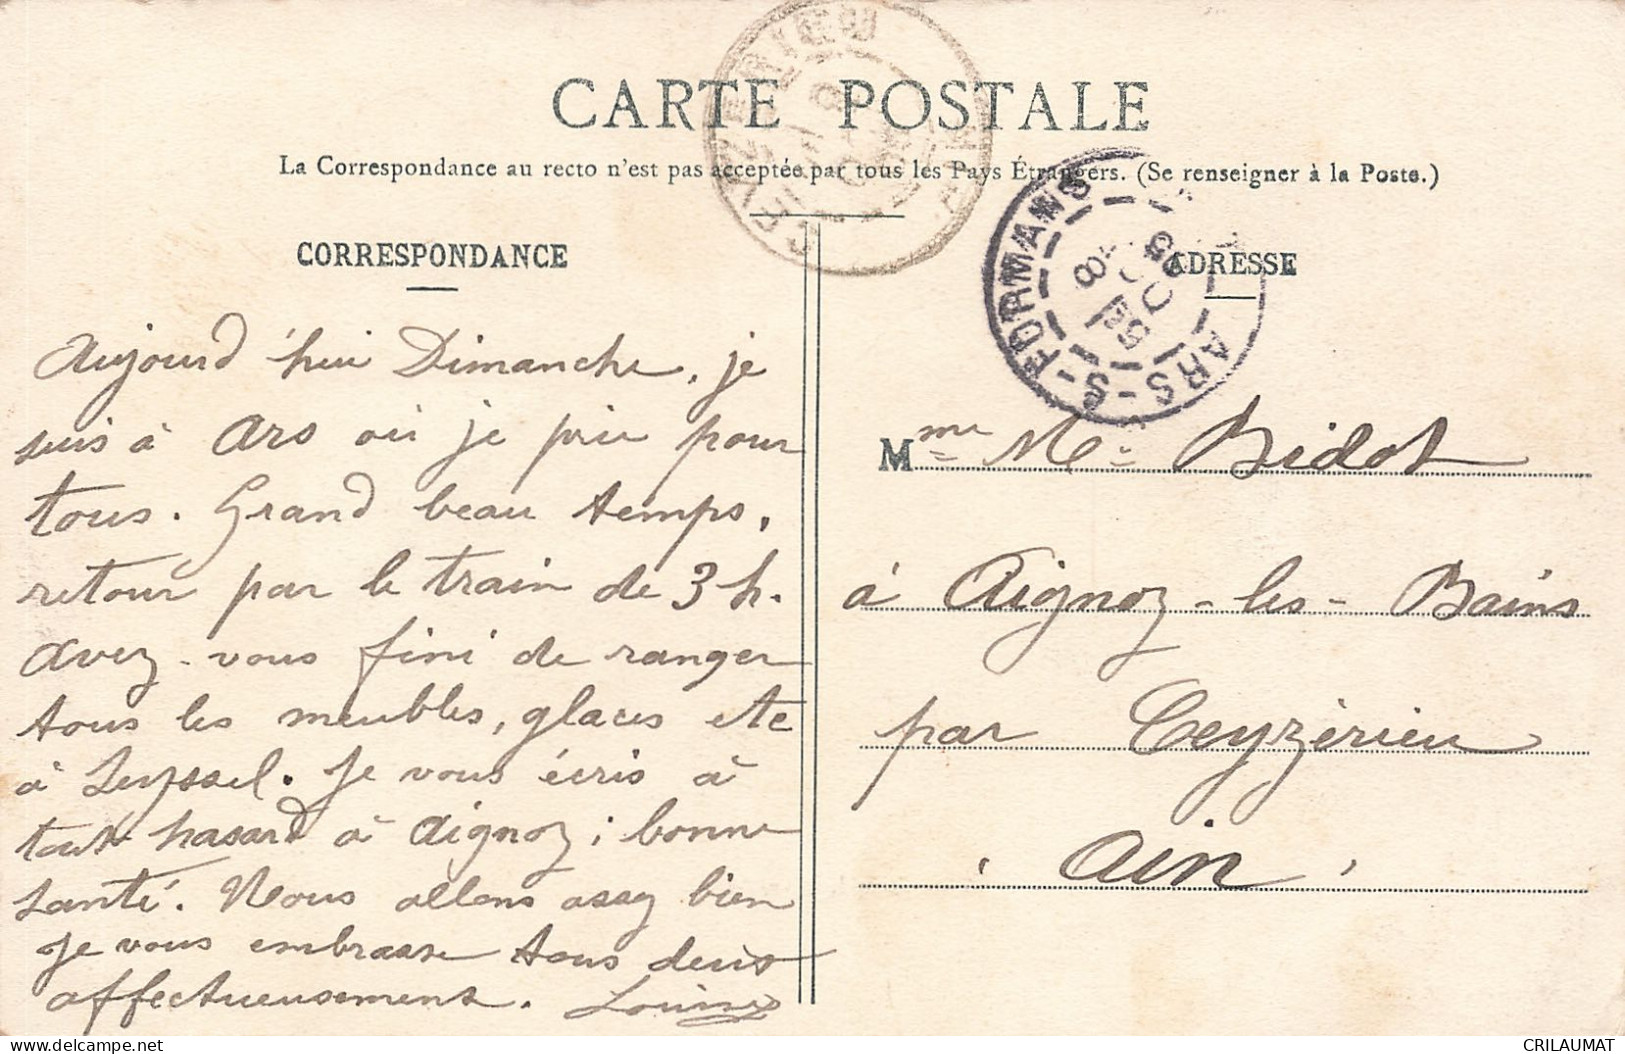 CARTE POSTALE
La Correspondance au recto n'est pas acceptée par tous les Pays Étrangers. (Se renseigner à la Poste.)
CORRESPONDANCE
Aujourd'hui Dimanche, je
suis à Ars où je prie pour
tous. Grand beau temps,
retour par le train de 3 h.
avez-vous fini de ranger
tous les meubles, glaces etc
à Seyssel. Je vous écris à
tout hasard à Aignoz; bonne
santé. Nous allons assez bien
Je vous embrasse tous deux
affectueusement.
ADRESSE
ARS-S-FORMANS
CEYZERIEU
AIN
Mme Me Bidot
à Aignoz-les-Bains
par Ceyzérieu
Ain
CRILAUMAT